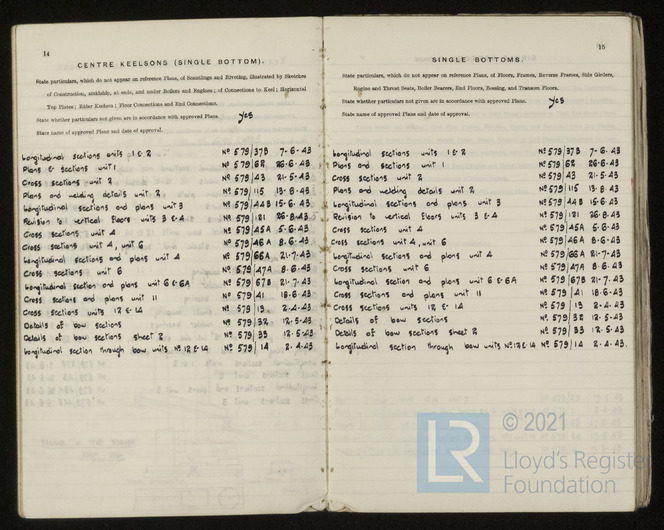 14
CENTRE KEELSONS (SINGLE BOTTOM).
State particulars, which do not appear on reference Plans, of Scantlings and Riveting, illustrated by Sketches
of Construction, amidship, at ends, and under Boilers and Engines; of Connections to Keel; Horizontal
Top Plates; Rider Keelson; Floor Connections and End Connections.
State whether particulars not given are in accordance with approved Plans. yes
State name of approved Plans and date of approval.
Longitudinal sections units 1 & 2 Nº 579/37B 7-6-43
Plans & sections unit 1 Nº 579/62 26-6-43
Cross sections unit 2 Nº 579/43 21-5-43
Plans and welding details unit 2 Nº 579/115 13-8-43
Longitudinal sections and plans unit 3 Nº 579/44B 15-6-43
Revision to vertical floors units 3 & 4 Nº 579/121 26-8-43
Cross sections unit 4 Nº 579/45A 5-6-43
Cross sections unit 4, unit 6 Nº 579/46A 8-6-43
Longitudinal sections and plans unit 4 Nº 579/66A 21-7-43
Cross sections unit 6 Nº 579/47A 8-6-43
Longitudinal section and plans unit 6 & 6A Nº 579/67B 21-7-43
Cross sections and plans unit 11 Nº 579/41 18-6-43
Cross sections units 12 & 14 Nº 579/13 2-4-43
Details of bow sections Nº 579/32 12-5-43
Details of bow sections sheet 2 Nº 579/33 12-5-43
Longitudinal section through bow units Nº 12 & 14 Nº 579/14 2-4-43
15
SINGLE BOTTOMS.
State particulars, which do not appear on reference Plans, of Floors, Frames, Reverse Frames, Side Girders,
Engine and Thrust Seats, Boiler Bearers, End Floors, Bossing, and Transom Floors.
State whether particulars not given are in accordance with approved Plans. yes
State name of approved Plans and date of approval.
Longitudinal sections units 1 & 2 Nº 579/37B 7-6-43
Plans and sections unit 1 Nº 579/62 26-6-43
Cross sections unit 2 Nº 579/43 21-5-43
Plans and welding details unit 2 Nº 579/115 13-8-43
Longitudinal sections and plans unit 3 Nº 579/44B 15-6-43
Revision to vertical floors units 3 & 4 Nº 579/121 26-8-43
Cross sections unit 4 Nº 579/45A 5-6-43
Cross sections unit 4, unit 6 Nº 579/46A 8-6-43
Longitudinal sections and plans unit 4 Nº 579/66A 21-7-43
Cross sections unit 6 Nº 579/47A 8-6-43
Longitudinal section and plans unit 6 & 6A Nº 579/67B 21-7-43
Cross sections and plans unit 11 Nº 579/41 18-6-43
Cross sections units 12 & 14 Nº 579/13 2-4-43
Details of bow sections Nº 579/32 12-5-43
Details of bow sections sheet 2 Nº 579/33 12-5-43
Longitudinal section through bow units Nº 12 & 14 Nº 579/14 2-4-43.
LR
© 2021
Lloyd's Register
Foundation